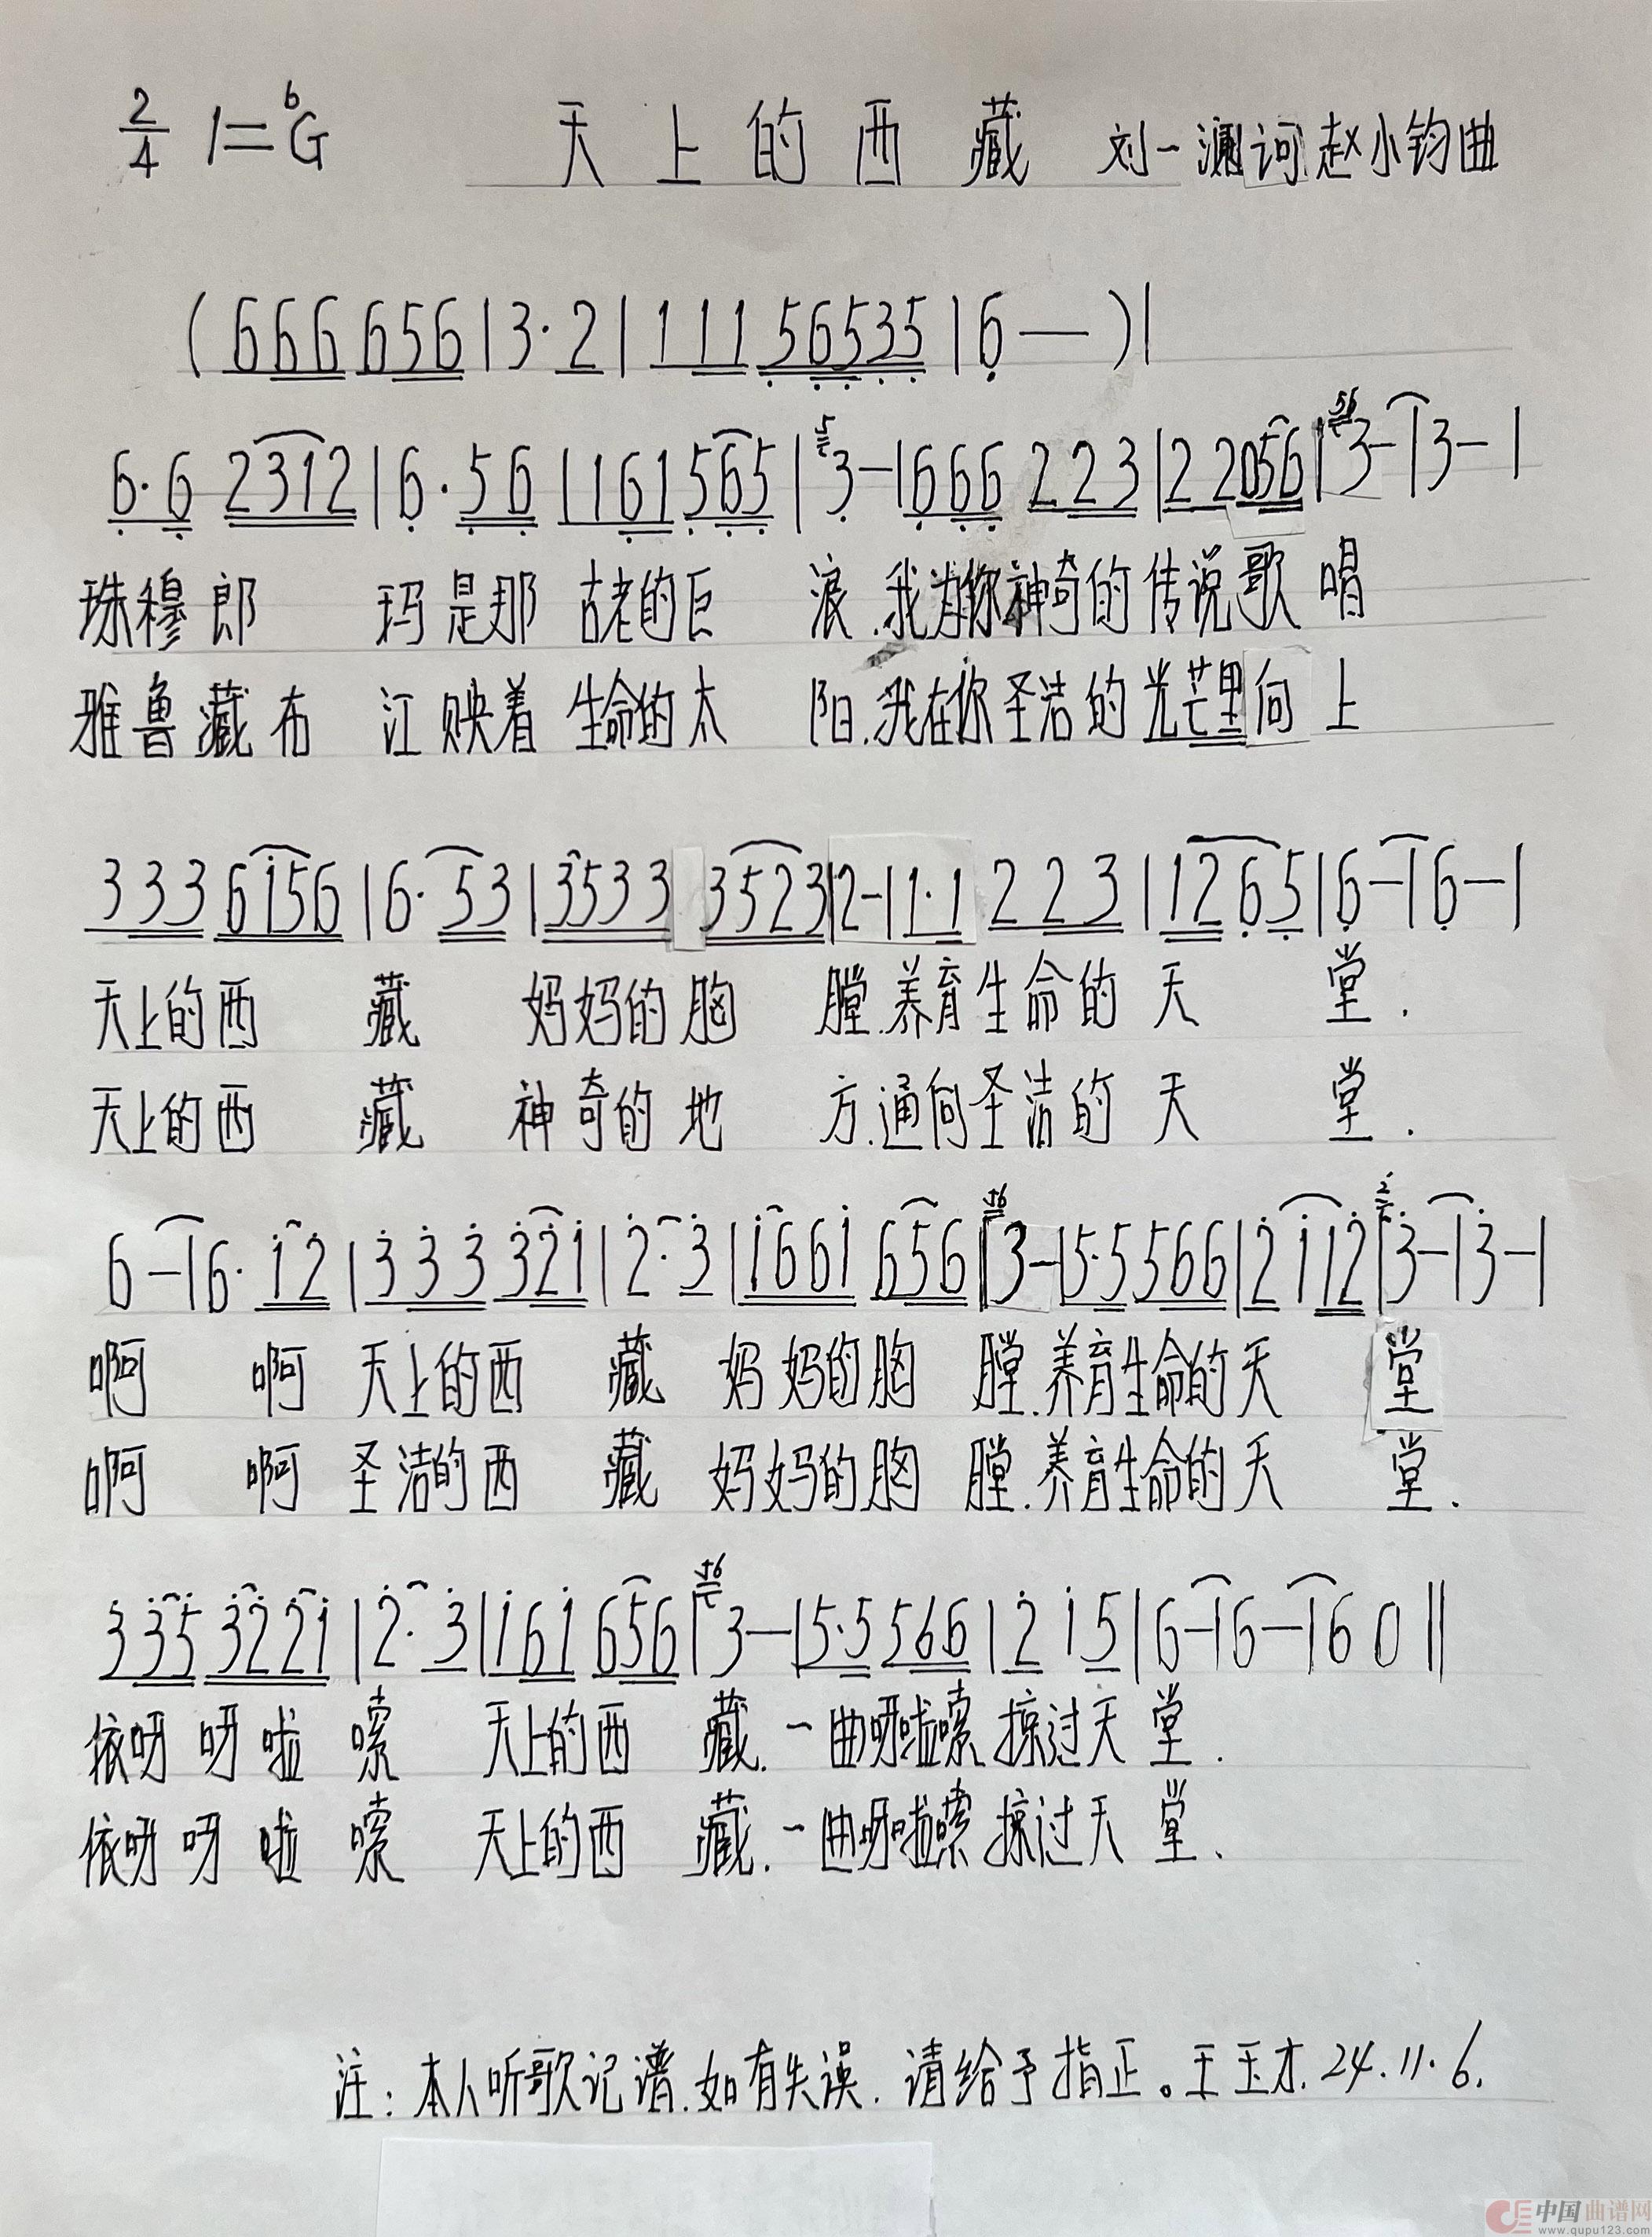 2/4 1=ᵇG 天上的西藏 刘一澜词 赵小钧曲
(666 656|3·2|111 56535|6—)|
6·6 2312|6·56|161 565|⁵3—|666 223|22056|⁵⁶3—|3—|
珠穆郎 玛是那 古老的巨 浪.我为你神奇的传说歌唱
雅鲁藏布 江映着 生命的太 阳.我在你圣洁的光芒里向上
333 6i56|6·53|3533 3523|2—|1·1 223|1265|6—|6—|
天上的西 藏 妈妈的胸 膛.养育生命的天 堂.
天上的西 藏 神奇的地 方.通向圣洁的天 堂.
6—|6·i2̇|3̇3̇3̇ 3̇2̇i|2̇·3̇|i66i 656|⁵⁶3—|5·5 566|2̇ii2̇|²̇3̇—|3̇—|
啊 啊 天上的西 藏 妈妈的胸 膛.养育生命的天 堂
啊 啊 圣洁的西 藏 妈妈的胸 膛.养育生命的天 堂.
3̇3̇5̇ 3̇2̇2̇i|2̇·3̇|i6i 656|⁵⁶3—|5·5 566|2̇ i5|6—|6—|60‖
依呀呀啦 嗦 天上的西 藏.一曲呀啦嗦掠过天 堂.
依呀呀啦 嗦 天上的西 藏.一曲呀啦嗦掠过天 堂.
注:本人听歌记谱.如有失误.请给予指正。王玉木.24.11.6.
中国曲谱网
www.qupu123.com